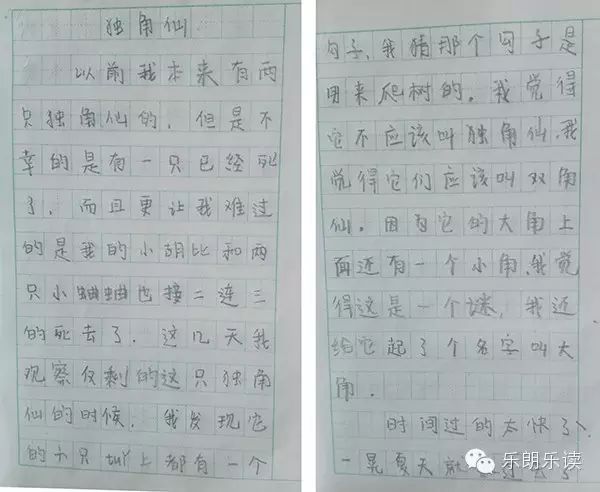 独角仙
以前我本来有两
只独角仙的，但是不
幸的是有一只已经死
了，而且更让我难过
的是我的小胡比和两
只小蛐蛐也接二连三
的死去了。这几天我
观察仅剩的这只独角
仙的时候，我发现它
的六只上都有一个
勾子，我猜那个勾子是
用来爬树的。我觉得
它不应该叫独角仙，我
觉得它们应该叫双角
仙。因为它的大角上
面还有一个小角，我觉
得这是一个谜，我还
给它起了个名字叫大
角。
时间过的太快了、
一晃夏天就
乐朗乐读